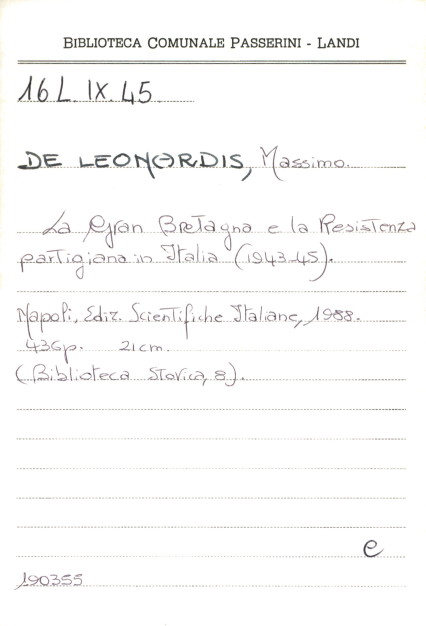 BIBLIOTECA COMUNALE PASSERINI - LANDI
16 L. IX. 45
DE LEONARDIS, Massimo.
La Gran Bretagna e la Resistenza
partigiana in Italia (1943-45).
Napoli, Ediz. Scientifiche Italiane, 1988.
436p. 21cm.
(Biblioteca storica, 8).
e
190355